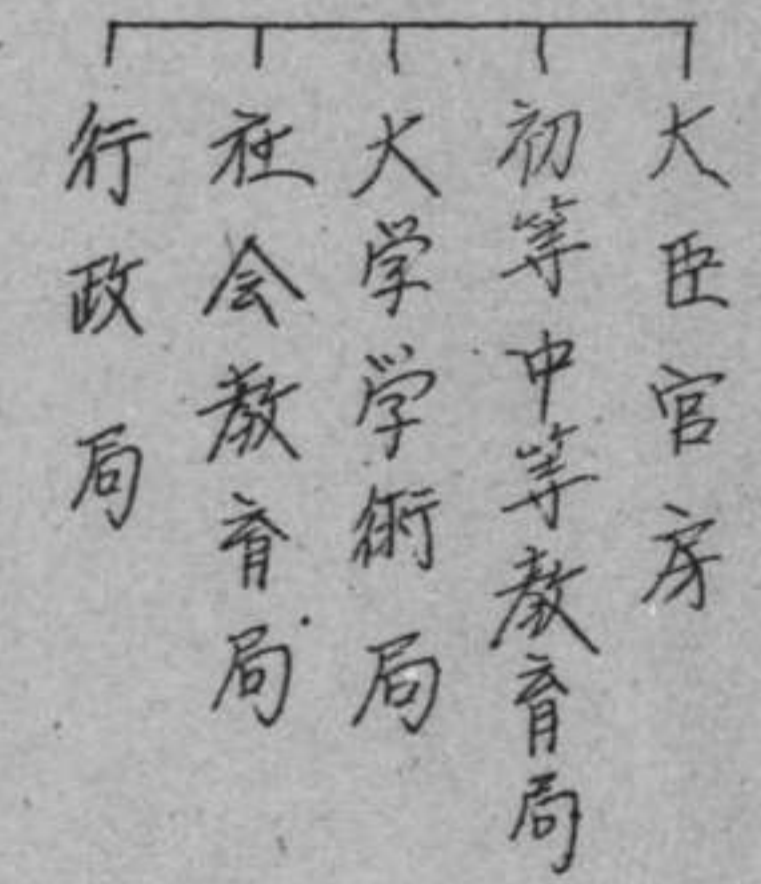 大臣官房
初等中等教育局
大学学術局
社会教育局
行政局